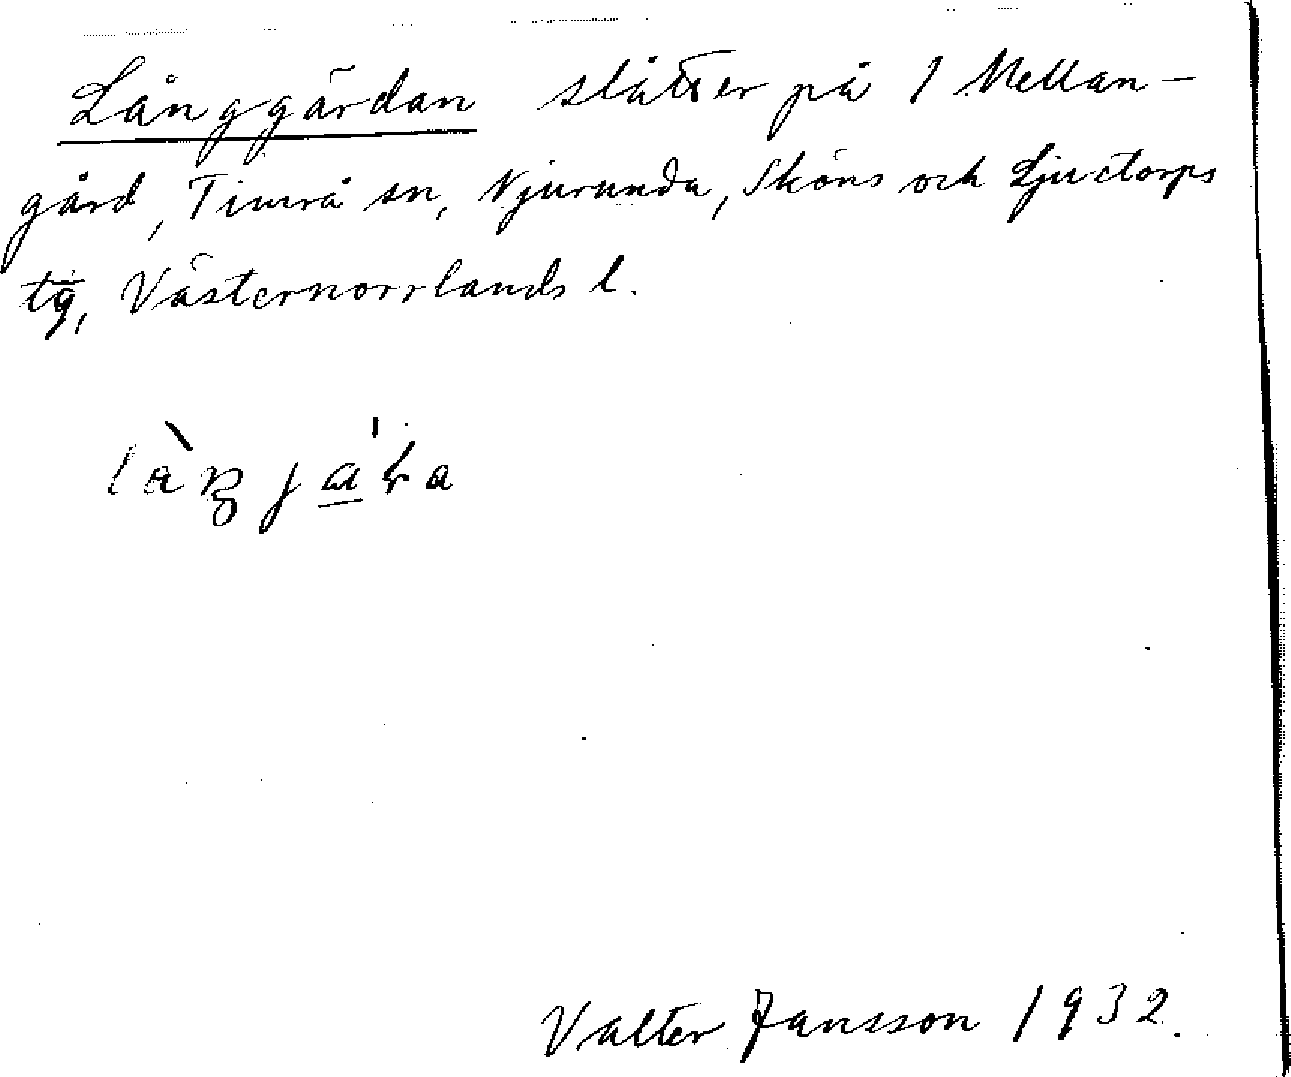 Långgärdan slåtter på 1 Mellan-
gård, Timrå sn, Njurunda, Sköns och Ljustorps
tg, Västernorrlands l.
Valter Jansson 1932.